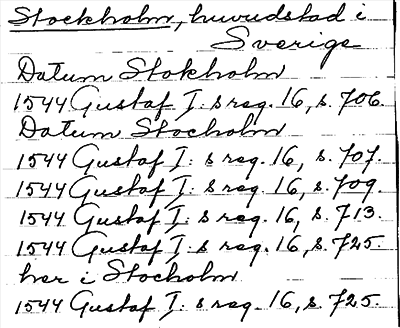 Stockholm, huvudstad i
Sverige
Datum Stokholm
1544 Gustaf I: s reg. 16, s. 706.
Datum Stocholm
1544 Gustaf I: s reg. 16, s. 707.
1544 Gustaf I: s reg. 16, s. 709.
1544 Gustaf I: s reg. 16, s. 713.
1544 Gustaf I: s reg. 16, s. 725.
her i Stocholm
1544 Gustaf I: s reg. 16, s. 725.